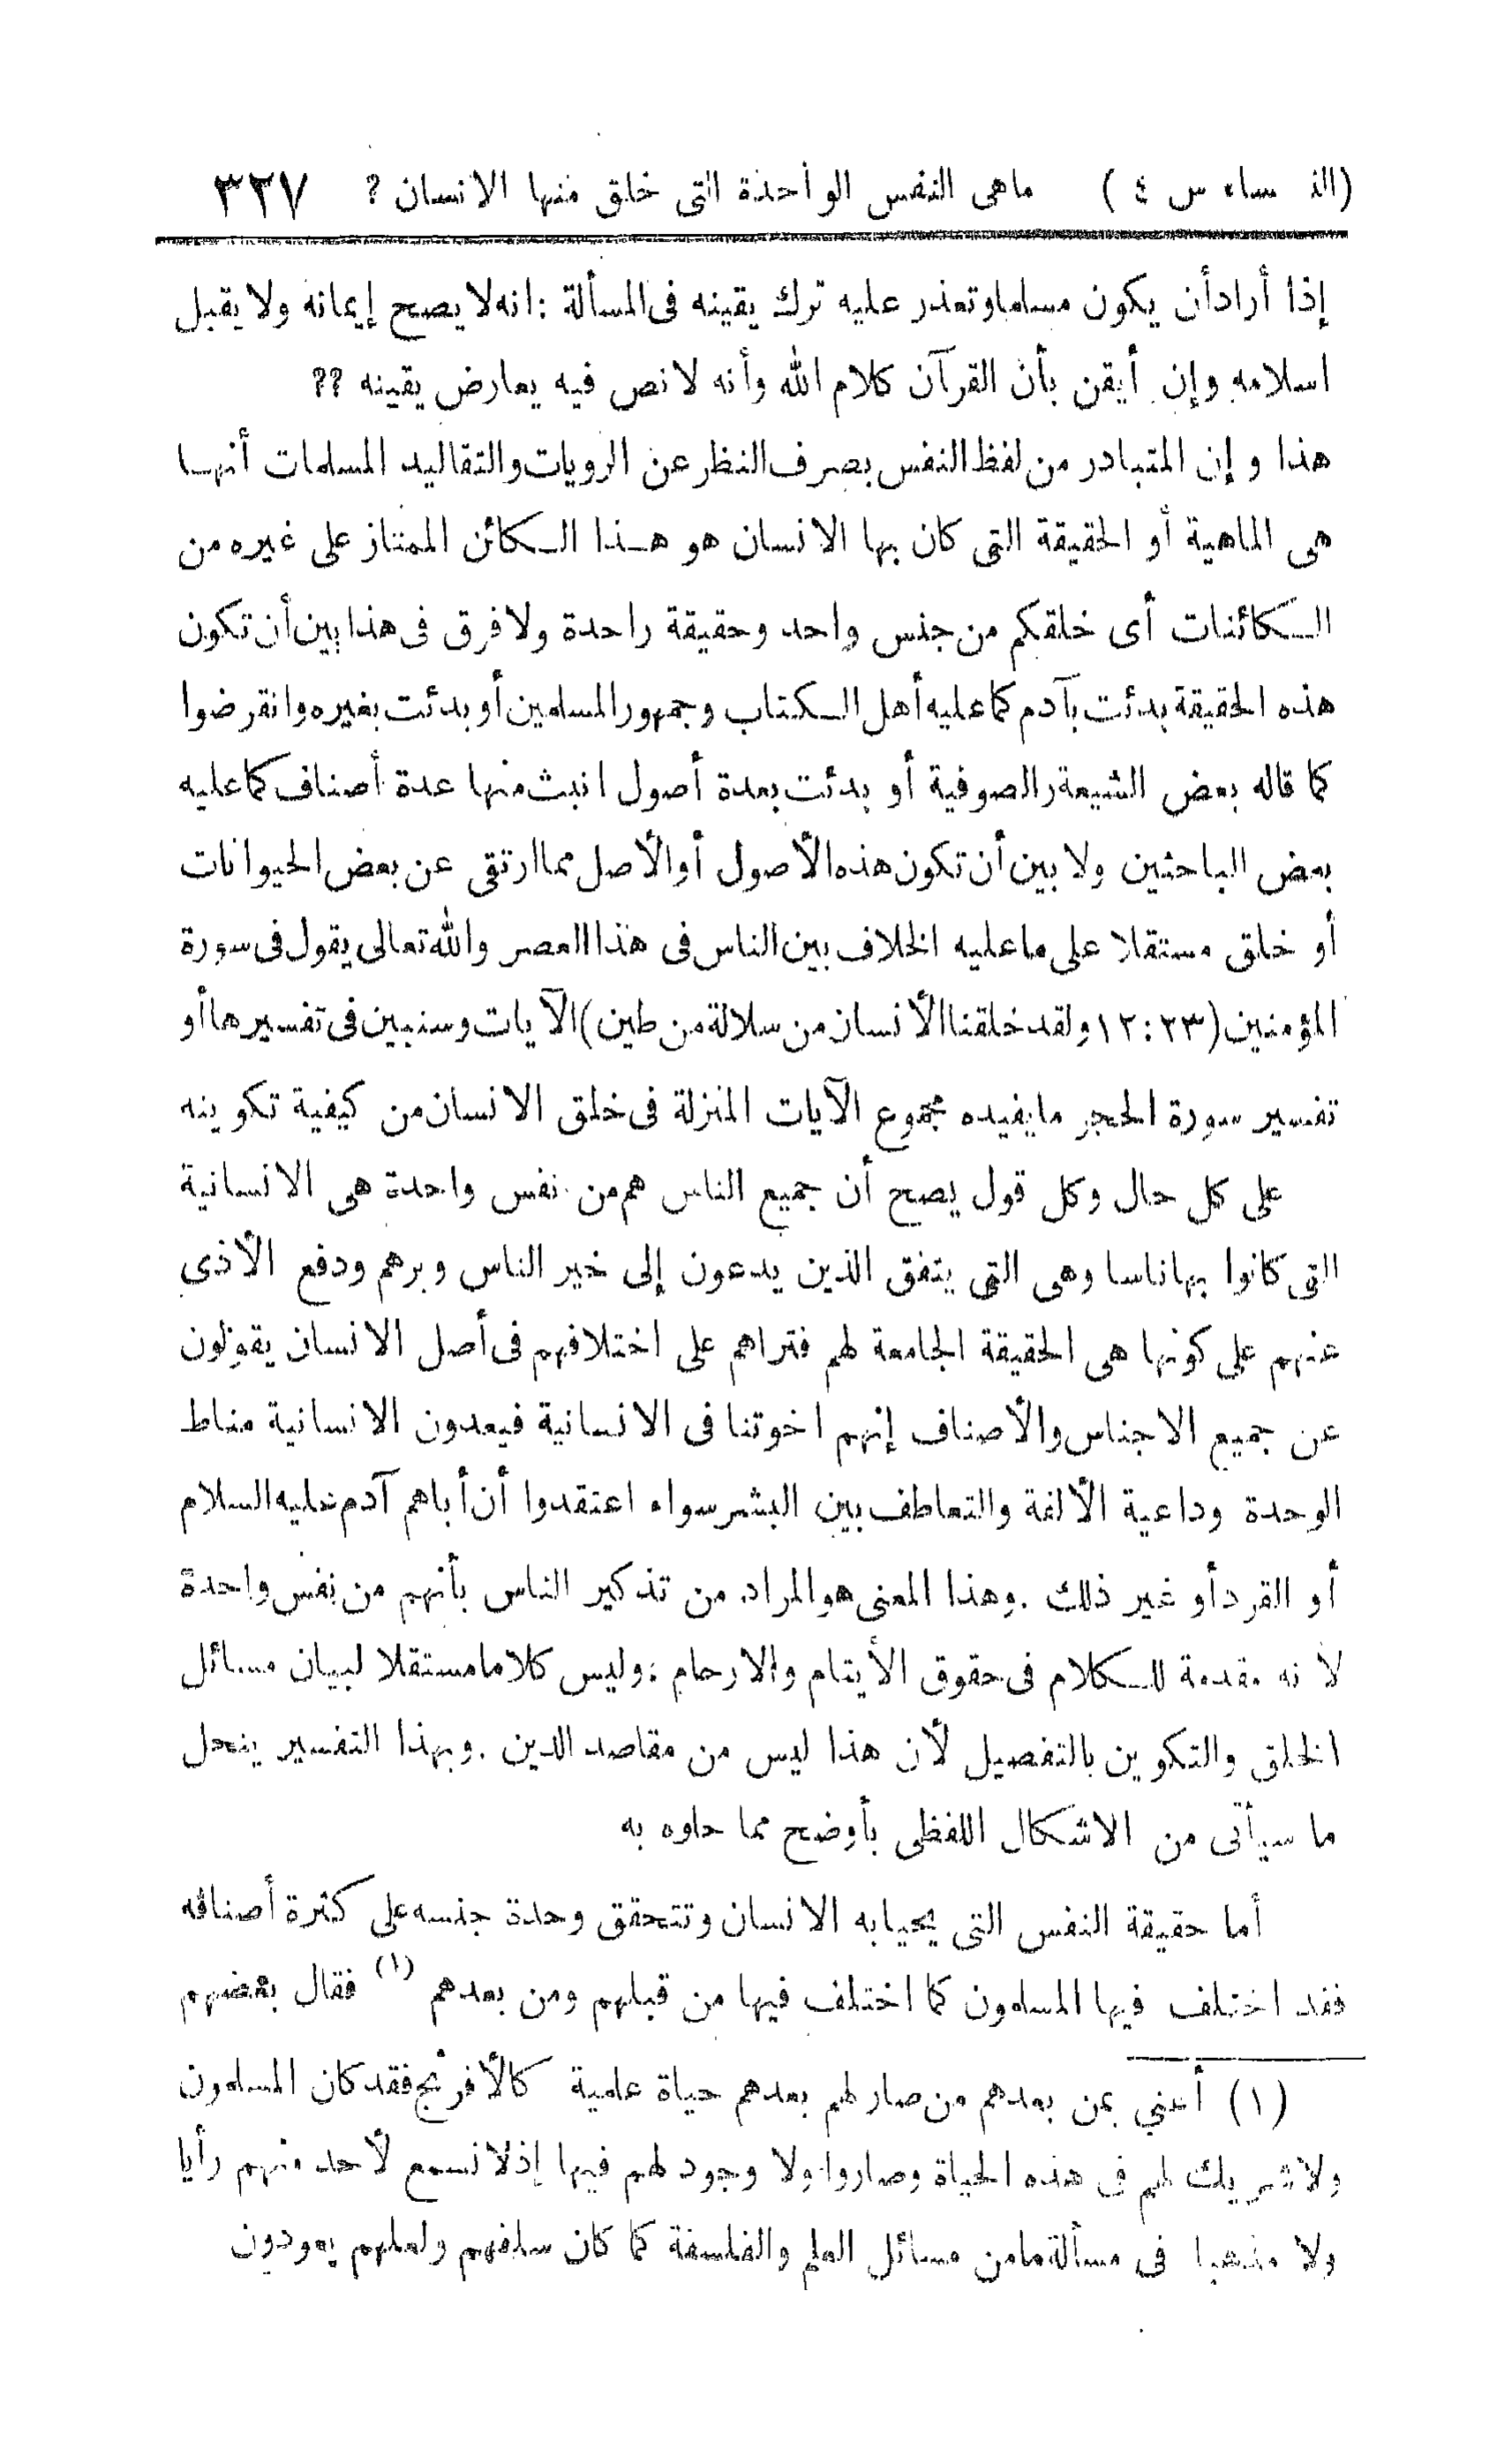 (النساء س ٤) ماهى النفس الواحدة التى خلق منها الانسان ? ٣٢٧
إذا أراد أن يكون مسلما وتعذر عليه ترك يقينه فى المسألة : انه لا يصح إيمانه ولا يقبل
اسلامه وإن أيقن بأن القرآن كلام الله وأنه لا نص فيه يعارض يقينه ??
هذا وإن المتبادر من لفظ النفس بصرف النظر عن الرويات والتقاليد المسلمات أنهـا
هى الماهية أو الحقيقة التى كان بها الانسان هو هـذا الـكائن الممتاز على غيره من
الـكائنات أى خلقكم من جنس واحد وحقيقة واحدة ولا فرق فى هذا بين أن تكون
هذه الحقيقة بدئت بآدم كما عليه أهل الـكتاب وجمهور المسلمين أو بدئت بغيره وانقرضوا
كما قاله بعض الشيعة والصوفية أو بدئت بعدة أصول انبث منها عدة أصناف كما عليه
بعض الباحثين ولا بين أن تكون هذه الأصول أو الأصل مما ارتقى عن بعض الحيوانات
أو خلق مستقلا على ما عليه الخلاف بين الناس فى هذا العصر والله تعالى يقول فى سورة
المؤمنين (٢٣ : ١٢ ولقد خلقنا الأنسان من سلالة من طين) الآيات وسنبين فى تفسيرها أو
تفسير سورة الحجر ما يفيده مجموع الآيات المنزلة فى خلق الانسان من كيفية تكوينه
على كل حال وكل قول يصح أن جميع الناس هم من نفس واحدة هى الانسانية
التى كانوا بها ناسا وهى التى يتفق الذين يدعون إلى خير الناس وبرهم ودفع الأذى
عنهم على كونها هى الحقيقة الجامعة لهم فتراهم على اختلافهم فى أصل الانسان يقولون
عن جميع الاجناس والأصناف إنهم اخوتنا فى الانسانية فيعدون الانسانية مناط
الوحدة وداعية الألفة والتعاطف بين البشر سواء اعتقدوا أن أباهم آدم عليه السلام
أو القرد أو غير ذلك . وهذا المعنى هو المراد من تذكير الناس بأنهم من نفس واحدة
لأنه مقدمة للـكلام فى حقوق الأيتام والارحام : وليس كلاما مستقلا لبيان مسائل
الخلق والتكوين بالتفصيل لأن هذا ليس من مقاصد الدين . وبهذا التفسير ينحل
ما سيأتى من الاشكال اللفظى بأوضح مما حلوه به
أما حقيقة النفس التى يحيا به الانسان وتتحقق وحدة جنسه على كثرة أصنافه
فقد اختلف فيها المسلمون كما اختلف فيها من قبلهم ومن بعدهم (١) فقال بعضهم
(١) أعني بمن بعدهم من صار لهم بعدهم حياة علمية كالأفرنج فقد كان المسلمون
ولا شريك لهم فى هذه الحياة وصاروا ولا وجود لهم فيها إذ لا نسمع لأحد منهم رأيا
ولا مذهبا فى مسألة ما من مسائل العلم والفلسفة كما كان سلفهم ولعلهم يعودون